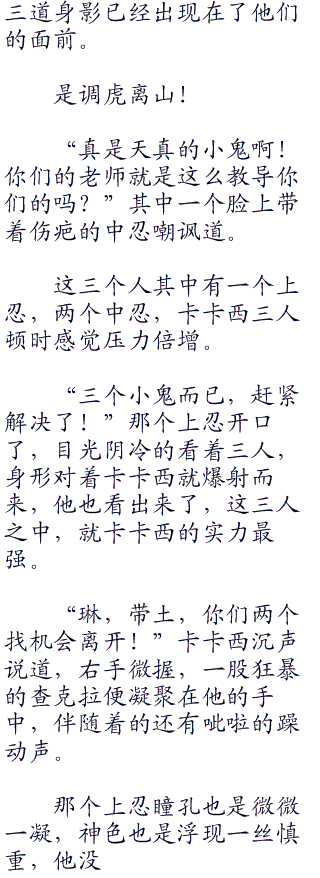 三道身影已经出现在了他们
的面前。
是调虎离山！
“真是天真的小鬼啊！
你们的老师就是这么教导你
们的吗？”其中一个脸上带
着伤疤的中忍嘲讽道。
这三个人其中有一个上
忍，两个中忍，卡卡西三人
顿时感觉压力倍增。
“三个小鬼而已，赶紧
解决了！”那个上忍开口
了，目光阴冷的看着三人，
身形对着卡卡西就爆射而
来，他也看出来了，这三人
之中，就卡卡西的实力最
强。
“琳，带土，你们两个
找机会离开！”卡卡西沉声
说道，右手微握，一股狂暴
的查克拉便凝聚在他的手
中，伴随着的还有呲啦的躁
动声。
那个上忍瞳孔也是微微
一凝，神色也是浮现一丝慎
重，他没